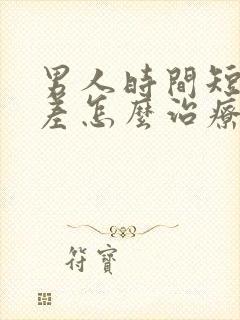 男人時間短
差怎麼治療
符寶